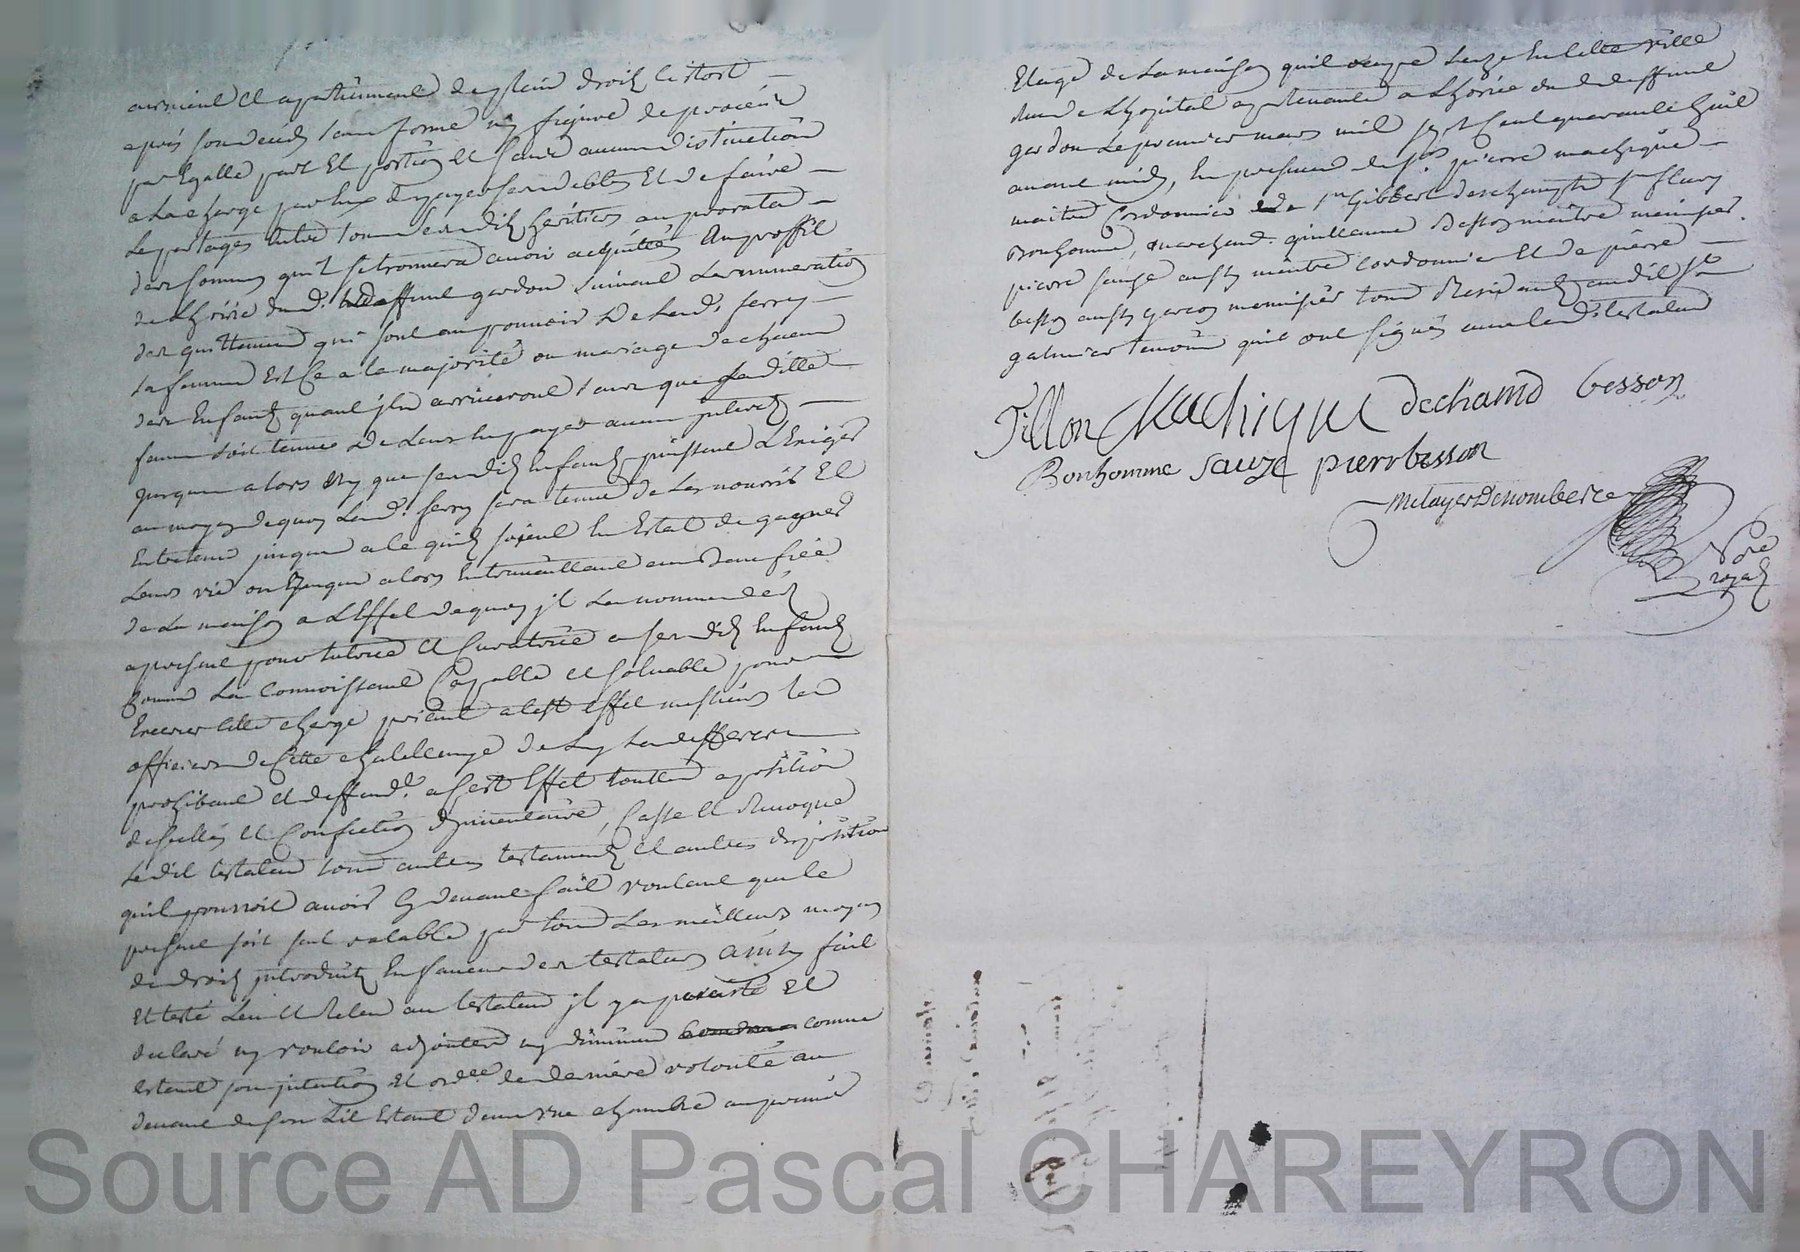 arrivent et apartiennent de plein droit le tout
après son deceds sans forme ny figure de procéds
par Egalle part Et portion et sans aucune distinction
a la charge par Eux de payer ses debtes Et de faire
Le partages Entre tous sesdits heritiers au prorata
des sommes quil se trouvera avoir acquittés Au proffit
de l'hoirie dud. deffunt gerdon suivant Lenumeration
des quittances qui sont au pouvoir De lad. ferry
sa femme Est Ce a la majorité ou mariage de chacun
des Enfants quant ils arriveront sans que Ladille
femme soit tenue De Leur En payer aucun interets
jusques a lors ny que sesdits Enfants puissent L'Exiger
au moyen de quoy Lad. ferry sera tenue de Les nourrir Et
Entretenir jusques a ce quils soient En Estat de gagner
Leurs vie En travaillant
de La maison a L'Effet de quoy il La nomme dès
a present pour tutrice et Curatrice a sesdits Enfants
Comme La Connoissant Capable et solvable pour
Exercer cette charge priant a cest Effet messieurs les
officiers de Cette
prohibant et deffend. a Cest Effet touttes aposition
descellés et Confection dinventaire, Casse et Revoque
Ledit testateur tous autres testaments et autres disposition
quil pourroit avoir Cy devant fait voulant que le
present soit seul valable par tous Les meilleurs moyens
de droit introduits En faveur des testateurs Ainsy fait
Et testé Leu et Releu au testateur il y a persisté Et
declaré ny vouloir adjouter ny diminuer comme
Estant son intention Et ord.ce de derniere volonté au
devant de son Lit Estant dans une chambre au premier
Etage de La maison quil occupe size En Cette ville
Rue de L'hopital apartenante a L'hoirie du deffunt
gerdon Le premier mars mil sept Cent quarante huit
avant midy, En presence de sr pierre machique
maitre Cordonnier sr Gilbert deschamps sr fleury
Bonhomme, marchand. guillaume Besson maitre menuisier.
pierre sauze aussy maitre Cordonnier Et de pierre
besson aussy garçon menuisier tous Residants audit St
galmier temoins qui ont signés avec led. testateur
Tillon Machique dechamd besson
Bonhomme sauze pierrbesson
Metayer Denombret
No.re
royal
Source AD Pascal CHAREYRON